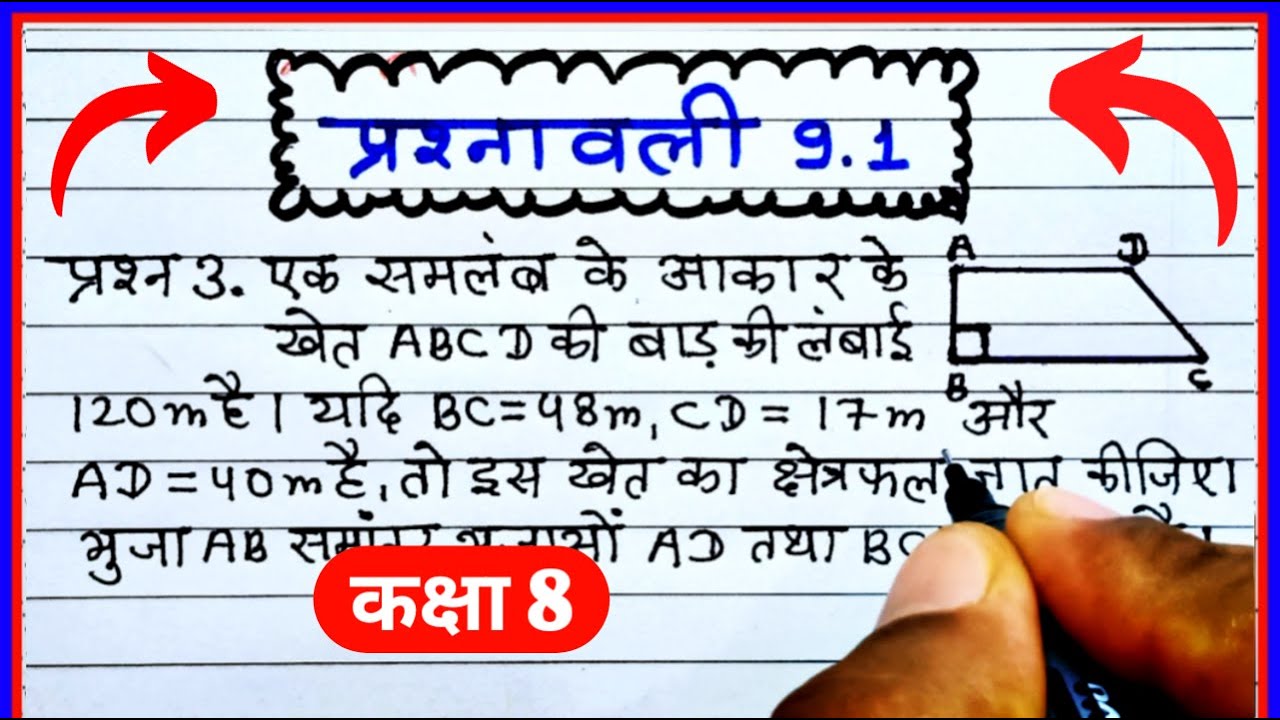 प्रश्नावली 9.1
प्रश्न 3. एक समलंब के आकार के
खेत ABCD की बाड़ की लंबाई
120m है। यदि BC=48m, CD = 17m और
AD=40m है, तो इस खेत का क्षेत्रफल ज्ञात कीजिए।
भुजा AB समांतर भुजाओं AD तथा BC है।
A D
B C
कक्षा 8